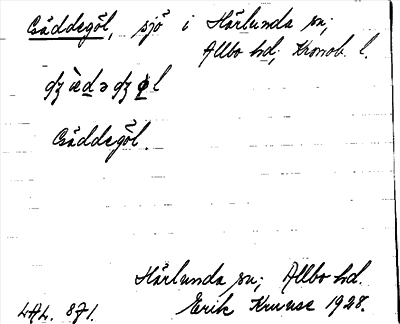 Gäddegöl, sjö i Härlunda sn;
Allbo hd, Kronob. l.
Gäddegöl.
Härlunda sn; Allbo hd.
LAL. 871. Erik Kruuse 1928.